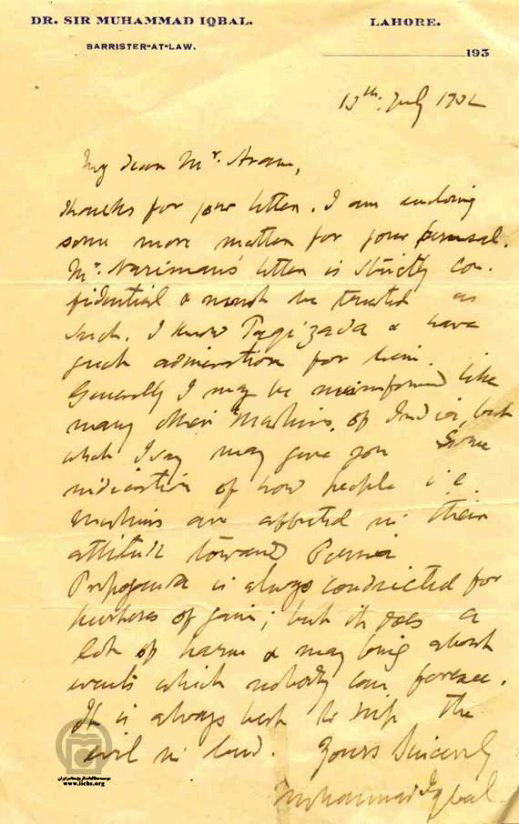 DR. SIR MUHAMMAD IQBAL.
BARRISTER-AT-LAW.
LAHORE.
193
13th. July 1932
My dear Mr. Aram,
Thanks for your letter. I am enclosing
some more matter for your perusal.
Mr. Nariman's letter is strictly con-
fidential & must be treated as
such. I know Taqizada & have
great admiration for him.
Generally I may be misinformed like
many other Muslims of India, but
what I say may give you some
indication of how people i.e.
Muslims are affected in their
attitude toward Persia
Propaganda is always conducted for
purposes of gain; but it does a
lot of harm & may bring about
events which nobody can foresee.
It is always best to nip the
evil in bud. Yours Sincerely
Mohammad Iqbal
www.iichs.org